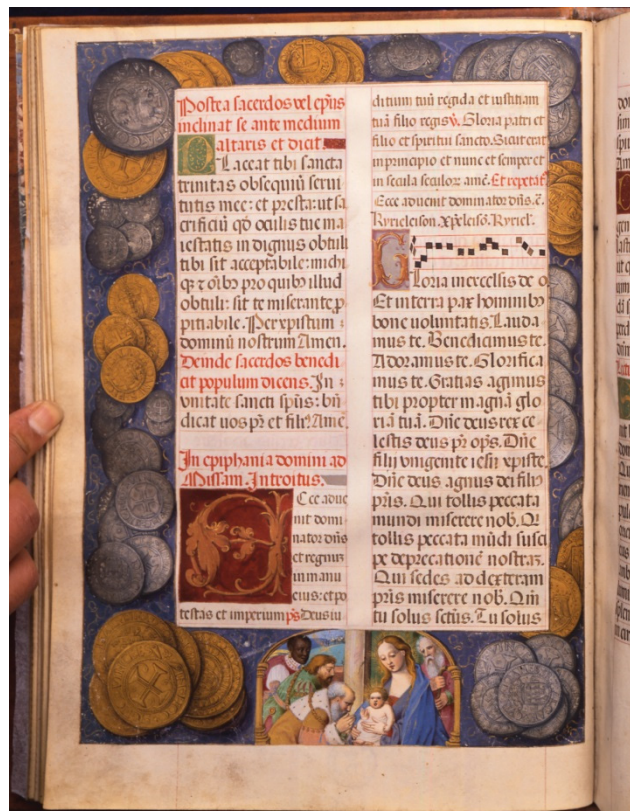 Postea sacerdos vel ep̄us
inclinat se ante medium
altaris et dicit
Placeat tibi sancta
trinitas obsequiū servi
tutis mee: et presta: ut sa
crificiū qđ oculis tue ma
iestatis indignus obtuli
tibi sit acceptabile: michi
q3 et oībꝫ pro quibꝫ illud
obtuli: sit te miserante ꝓ
pitiabile. Per xpistum
dominū nostrum Amen.
Deinde sacerdos benedi
cit populum dicens. In
vnitate sancti sp̄us: bn̄
dicat uos pr̄ et fili9 Amē.
In epiphania domini ad
Missam. Introitus.
Ecce adue
nit domi
nator dn̄s
et regnum
in manu
eius: et po
testas et imperium p̄s Deus iu
ditium tuū regi da et iustitiam
tuā filio regis v̄. Gloria patri et
filio et spiritui sancto. Sicut erat
in principio et nunc et semper et
in secula seculoꝝ amē. Et repetat᷑
Ecce aduenit dominator dn̄s. ē.
Kyrieleison. Xp̄eleisō. Kyriel.
Gloria in excelsis deo
Et in terra pax hominibꝫ
bone uoluntatis. Lauda
mus te. Benedicimus te.
Adoramus te. Glorifica
mus te. Gratias agimus
tibi propter magnā glo
riā tuā. Dn̄e deus rex ce
lestis deus pr̄ op̄s. Dn̄e
filii vnigenite iesu xpiste.
Dn̄e deus agnus dei filiꝰ
pr̄is. Qui tollis peccata
mundi miserere nob. Qi
tollis peccata mūdi susci
pe deprecationē nostraꝫ.
Qui sedes ad dexteram
pr̄is miserere nob. Qm̄
tu solus sctūs. Tu solus